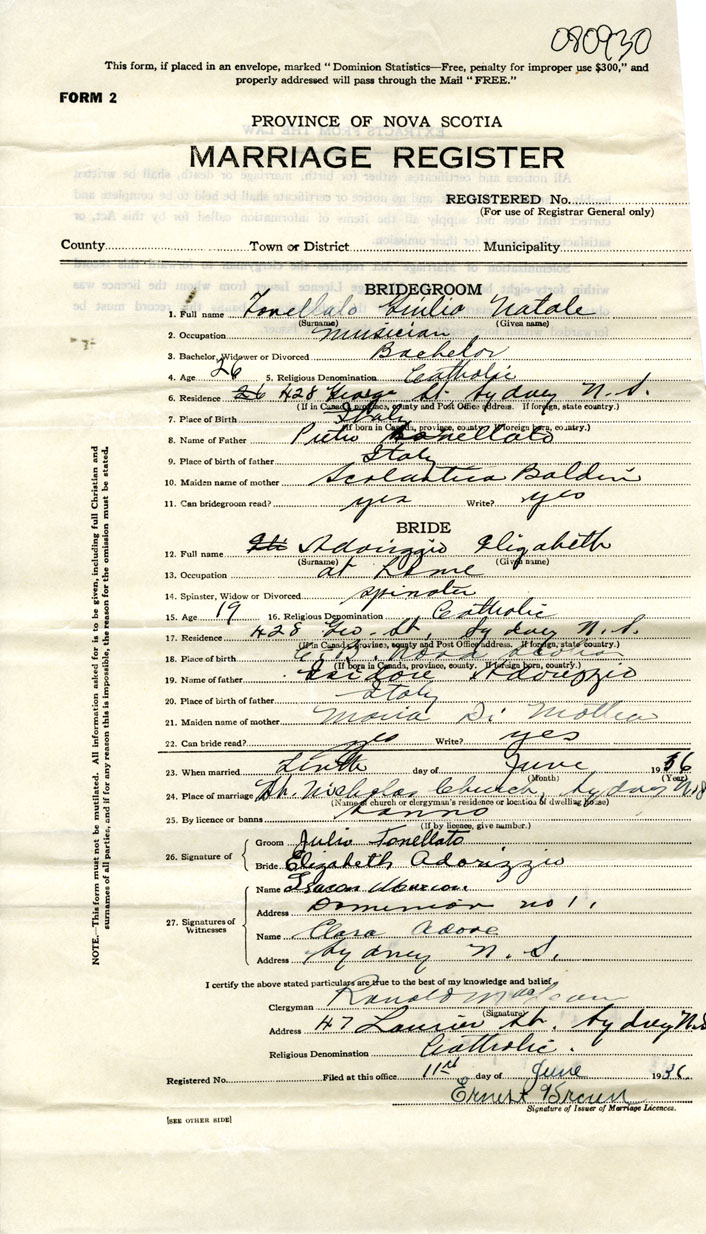 080930
This form, if placed in an envelope, marked "Dominion Statistics—Free, penalty for improper use $300," and
properly addressed will pass through the Mail "FREE."
FORM 2
PROVINCE OF NOVA SCOTIA
MARRIAGE REGISTER
REGISTERED No.
(For use of Registrar General only)
County Town or District Municipality
BRIDEGROOM
1. Full name Tonellato Giulio Natale
(Surname) (Given name)
2. Occupation musician
3. Bachelor, Widower or Divorced Bachelor
4. Age 26 5. Religious Denomination Catholic
6. Residence 428 George St. Sydney N.S.
(If in Canada, province, county and Post Office address. If foreign, state country.)
7. Place of Birth Italy
(If born in Canada, province, county. If foreign born, country.)
8. Name of Father Pietro Tonellato
9. Place of birth of father Italy
10. Maiden name of mother Scolastica Baldin
11. Can bridegroom read? yes Write? yes
BRIDE
12. Full name Adorizzio Elizabeth
(Surname) (Given name)
13. Occupation at home
14. Spinster, Widow or Divorced spinster
15. Age 19 16. Religious Denomination Catholic
17. Residence 428 Geo. St., Sydney N.S.
(If in Canada, province, county and Post Office address. If foreign, state country.)
18. Place of birth
(If born in Canada, province, county. If foreign born, country.)
19. Name of father Isidore Adorizzio
20. Place of birth of father Italy
21. Maiden name of mother Maria Di
22. Can bride read? yes Write? yes
23. When married day of June 1936
(Month) (Year)
24. Place of marriage St. Nicholas Church, Sydney N.S
(Name of church or clergyman's residence or location of dwelling house)
25. By licence or banns banns
(If by licence, give number.)
26. Signature of
Groom Julio Tonellato
Bride Elizabeth Adorizzio
27. Signatures of Witnesses
Name
Address Dominion no 1.
Name Clara Adore
Address Sydney N. S.
I certify the above stated particulars are true to the best of my knowledge and belief.
Clergyman Ronald
(Signature)
Address 47 Laurier St. Sydney N.S
Religious Denomination Catholic.
Registered No. Filed at this office 11rd day of June 1936
Ernest Brown
Signature of Issuer of Marriage Licences.
[SEE OTHER SIDE]
NOTE.—This form must not be mutilated. All information asked for is to be given, including full Christian and
surnames of all parties, and if for any reason this is impossible, the reason for the omission must be stated.